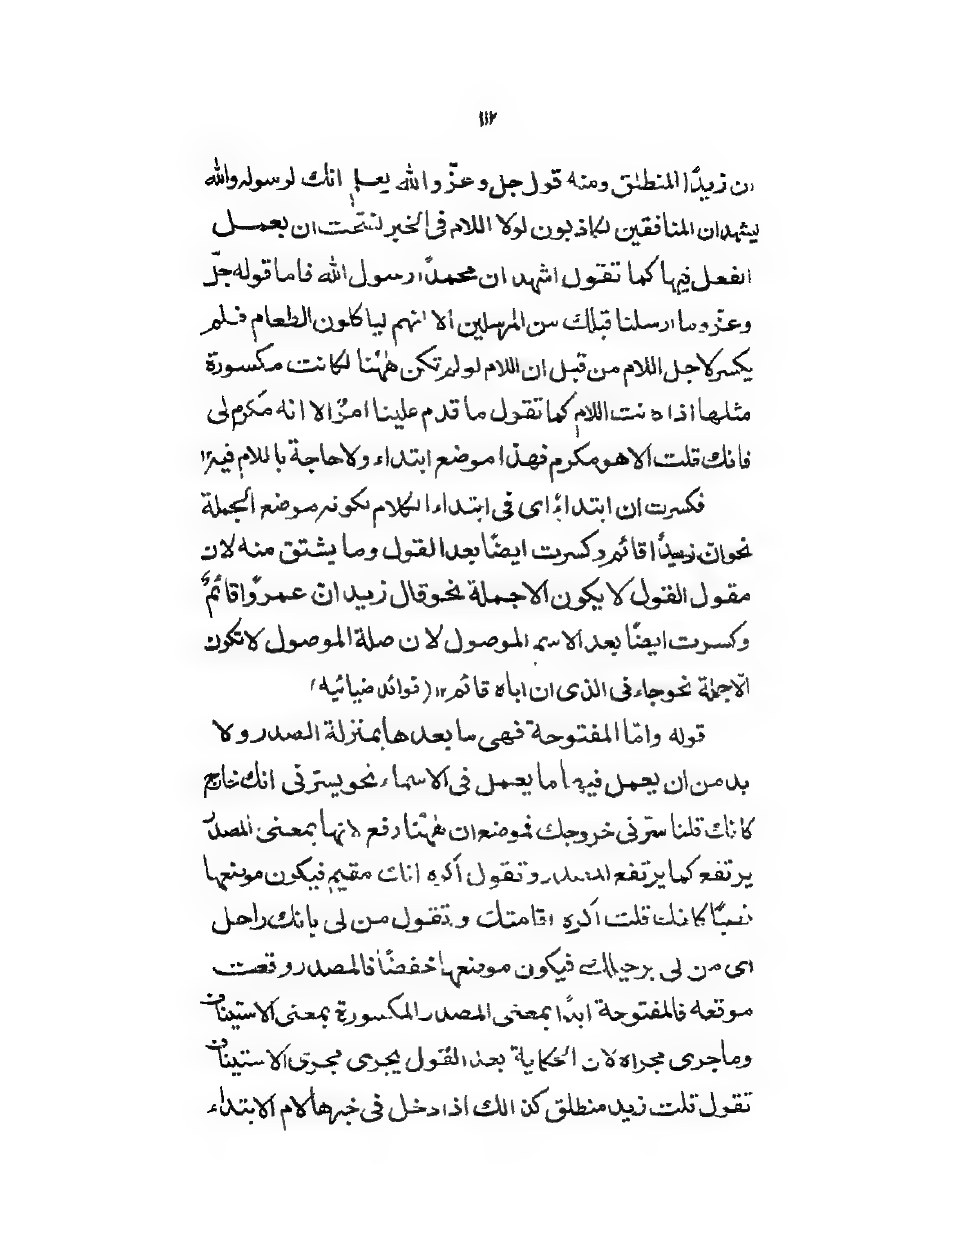 ١١٢
ان زيدًا المنطلق ومنه قول جل وعزّ والله يعلم انك لرسوله والله
يشهد ان المنافقين لكاذبون لولا اللام فى الخبر لفتحت ان بعمل
الفعل فيها كما تقول اشهد ان محمدًا رسول الله فاما قوله جلّ
وعزّ وما ارسلنا قبلك من المرسلين الا انهم لياكلون الطعام فلم
يكسر لاجل اللام من قبل ان اللام لو لم تكن ههنا لكانت مكسورة
مثلها اذا كانت اللام كما تقول ما قدم علينا امرٌ الا انه مكرم لى
فانك قلت الا هو مكرم فهذا موضع ابتداء ولا حاجة با للام فيه ١٢
فكسرت ان ابتداءً اى فى ابتداء الكلام لكونه موضع الجملة
نحو انّ زيدًا قائم وكسرت ايضًا بعد القول وما يشتق منه لان
مقول القول لا يكون الا جملة نحو قال زيد انّ عمروًا قائمٌ
وكسرت ايضًا بعد الاسم الموصول لان صلة الموصول لا تكون
الّا جملة نحو جاءنى الذى ان اباه قائم ١٢ (فوائد ضيائيه)
قوله وامّا المفتوحة فهى ما بعدها بمنزلة المصدر ولا
بد من ان يعمل فيها ما يعمل فى الاسماء نحو يسرّنى انك خارج
كانك قلنا سرّنى خروجك فموضع ان ههنا رفع لانها بمعنى المصدر
يرتفع كما يرتفع المصدر و تقول أكره انك مقيم فيكون موضعها
نصبًا كانك قلت اكره اقامتك و تقول من لى بانك راحل
اى من لى برحيلك فيكون موضعها خفضًا فالمصدر وقعت
موقعه فالمفتوحة ابدًا بمعنى المصدر المكسورة بمعنى الاستيناف
وما جرى مجراه لان الحكاية بعد القول يجرى مجرى الاستيناف
تقول قلت زيد منطلق كذالك اذا دخل فى خبرها لام الابتداء